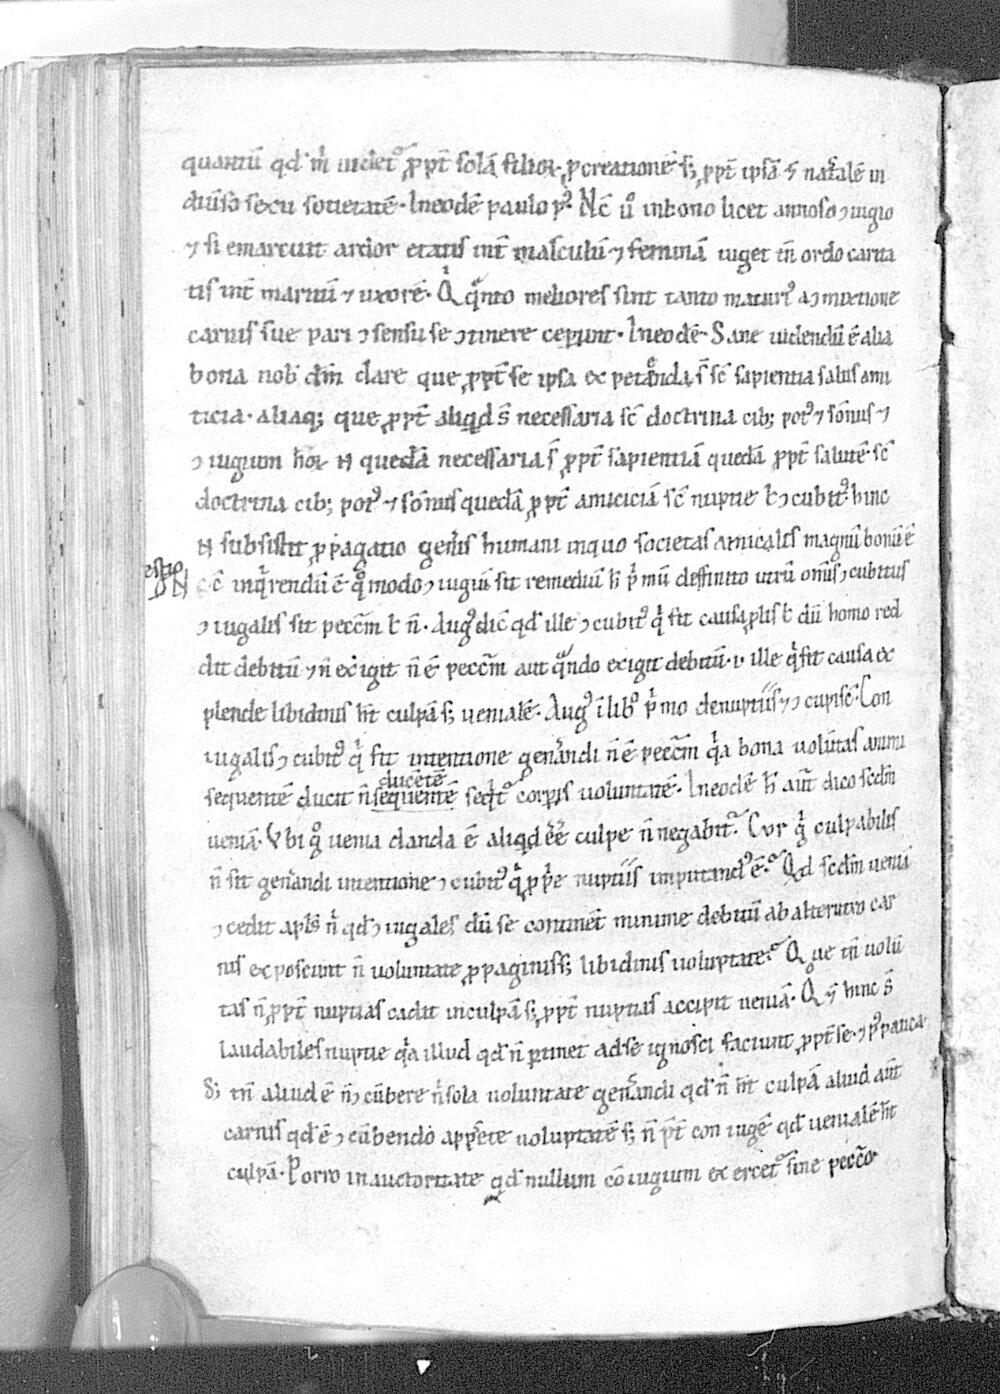 quantū qd' m̊ uidet᷒ ꝓpt̄ solā filioꝝ ꝓcreationē s; ꝓpt̄ ipsā ⁊ nat̄alē in
diu͛so sexu sotietatē · Ineodē paulo p᷒ · Nc̄ u͛o inbono licet annoso ↄiugio
⁊ si emarcuit ardor etatis int̄ masculū ⁊ feminā uiget tn̄ ordo carita
tis int̄ maritū ⁊ uxorē · Qͥ qͣnto meliores sint tanto matuni᷒ a ↄmixtione
carnis sue pari ↄsensu se ↄtinere ceperunt · Ineodē · Sane uidendū ē alia
bona nob̄ dm̄ dare que ꝓpt̄ se ipsa expetenda s̄ sc̄ sapientia salus ami
ticia · aliaq; que ꝓpt̄ aliqd s̄ necessaria sc̄ doctrina cib; pot᷒ ⁊ sōnus ⁊
ↄiugium hoꝝ N quedā necessaria s̄ ꝓpt̄ sapientiā quedā ꝓpt̄ salutē · sc̄
doctrina cib; pot᷒ ⁊ sōnus quedā ꝓpt̄ amiciciā sc̄ nuptie ł ↄcubit᷒ hinc
N subsistit ꝓpagatio gen͛is humani inquo societas amicalis magnū bonū ē
estio N
c̄ inqͥrendū ē qͦmodo ↄiugiū sit remediū h̄ pͥmū deffinito utrū om̄is ↄcubitus
ↄiugalis sit pecc̄m ł n̄ · Aug᷒ dic̄ qd' ille ↄcubit᷒ qͥ fit causa plis ł dū homo red
dit debitū ⁊ n̄ exigit n̄ ē pecc̄m aut qͣndo exigit debitū · i· ille qͥ fit causa ex
plende libidinis ht̄ culpā s; uenialē · Aug᷒ ī libͦ pͥmo denuptiis ⁊ ↄcupisc̄ · Con
iugalis ↄcubit᷒ qͥ fit intentione gen͛andi n̄ ē pecc̄m qͥa bona uolūtas animi
sequentē ducit n̄ sequentē seqͥt᷒ corpis uoluntatē · Ineodē h̄ aut̄ dico scdm̄
ducētē
ueniā · Vbi gͦ uenia danda ē aliqd ēe culpe n̄ negabit᷒ · Cur gͥ culpabilis
n̄ sit gen͛andi intentione ↄcubit᷒ qͥ ꝓpe nuptiis imputand᷒ ē · Qd scdm̄ ueniā
ↄcedit apl̄s n̄ qd' ↄiugales dū se continet minime debitū ab alterutro car
nis exposcunt n̄ uoluntate ꝓpaginis s; libidinis uoluptate · Que tn̄ uolū
tas n̄ ꝓpt̄ nuptias cadit inculpā s; ꝓpt̄ nuptias accipit ueniā · Q ⁊ hinc s̄
laudabiles nuptie qͥa illud qd' n̄ ꝑtinet adse ignosci faciunt ꝓpt̄ se · ⁊ p᷒ pauca
S; tn̄ aliud ē n̄ ↄcūbere n̄ sola uoluntate gen͛andi qd' n̄ ht̄ culpā aliud aut̄
carnis qd' ē ↄcūbendo appetere uoluptatē s; n̄ pt̄ coniugē qd' uenialē ht̄
culpā · Porro inauctoritate qd' nullum cōiugium exercet᷒ sine pecc̄o